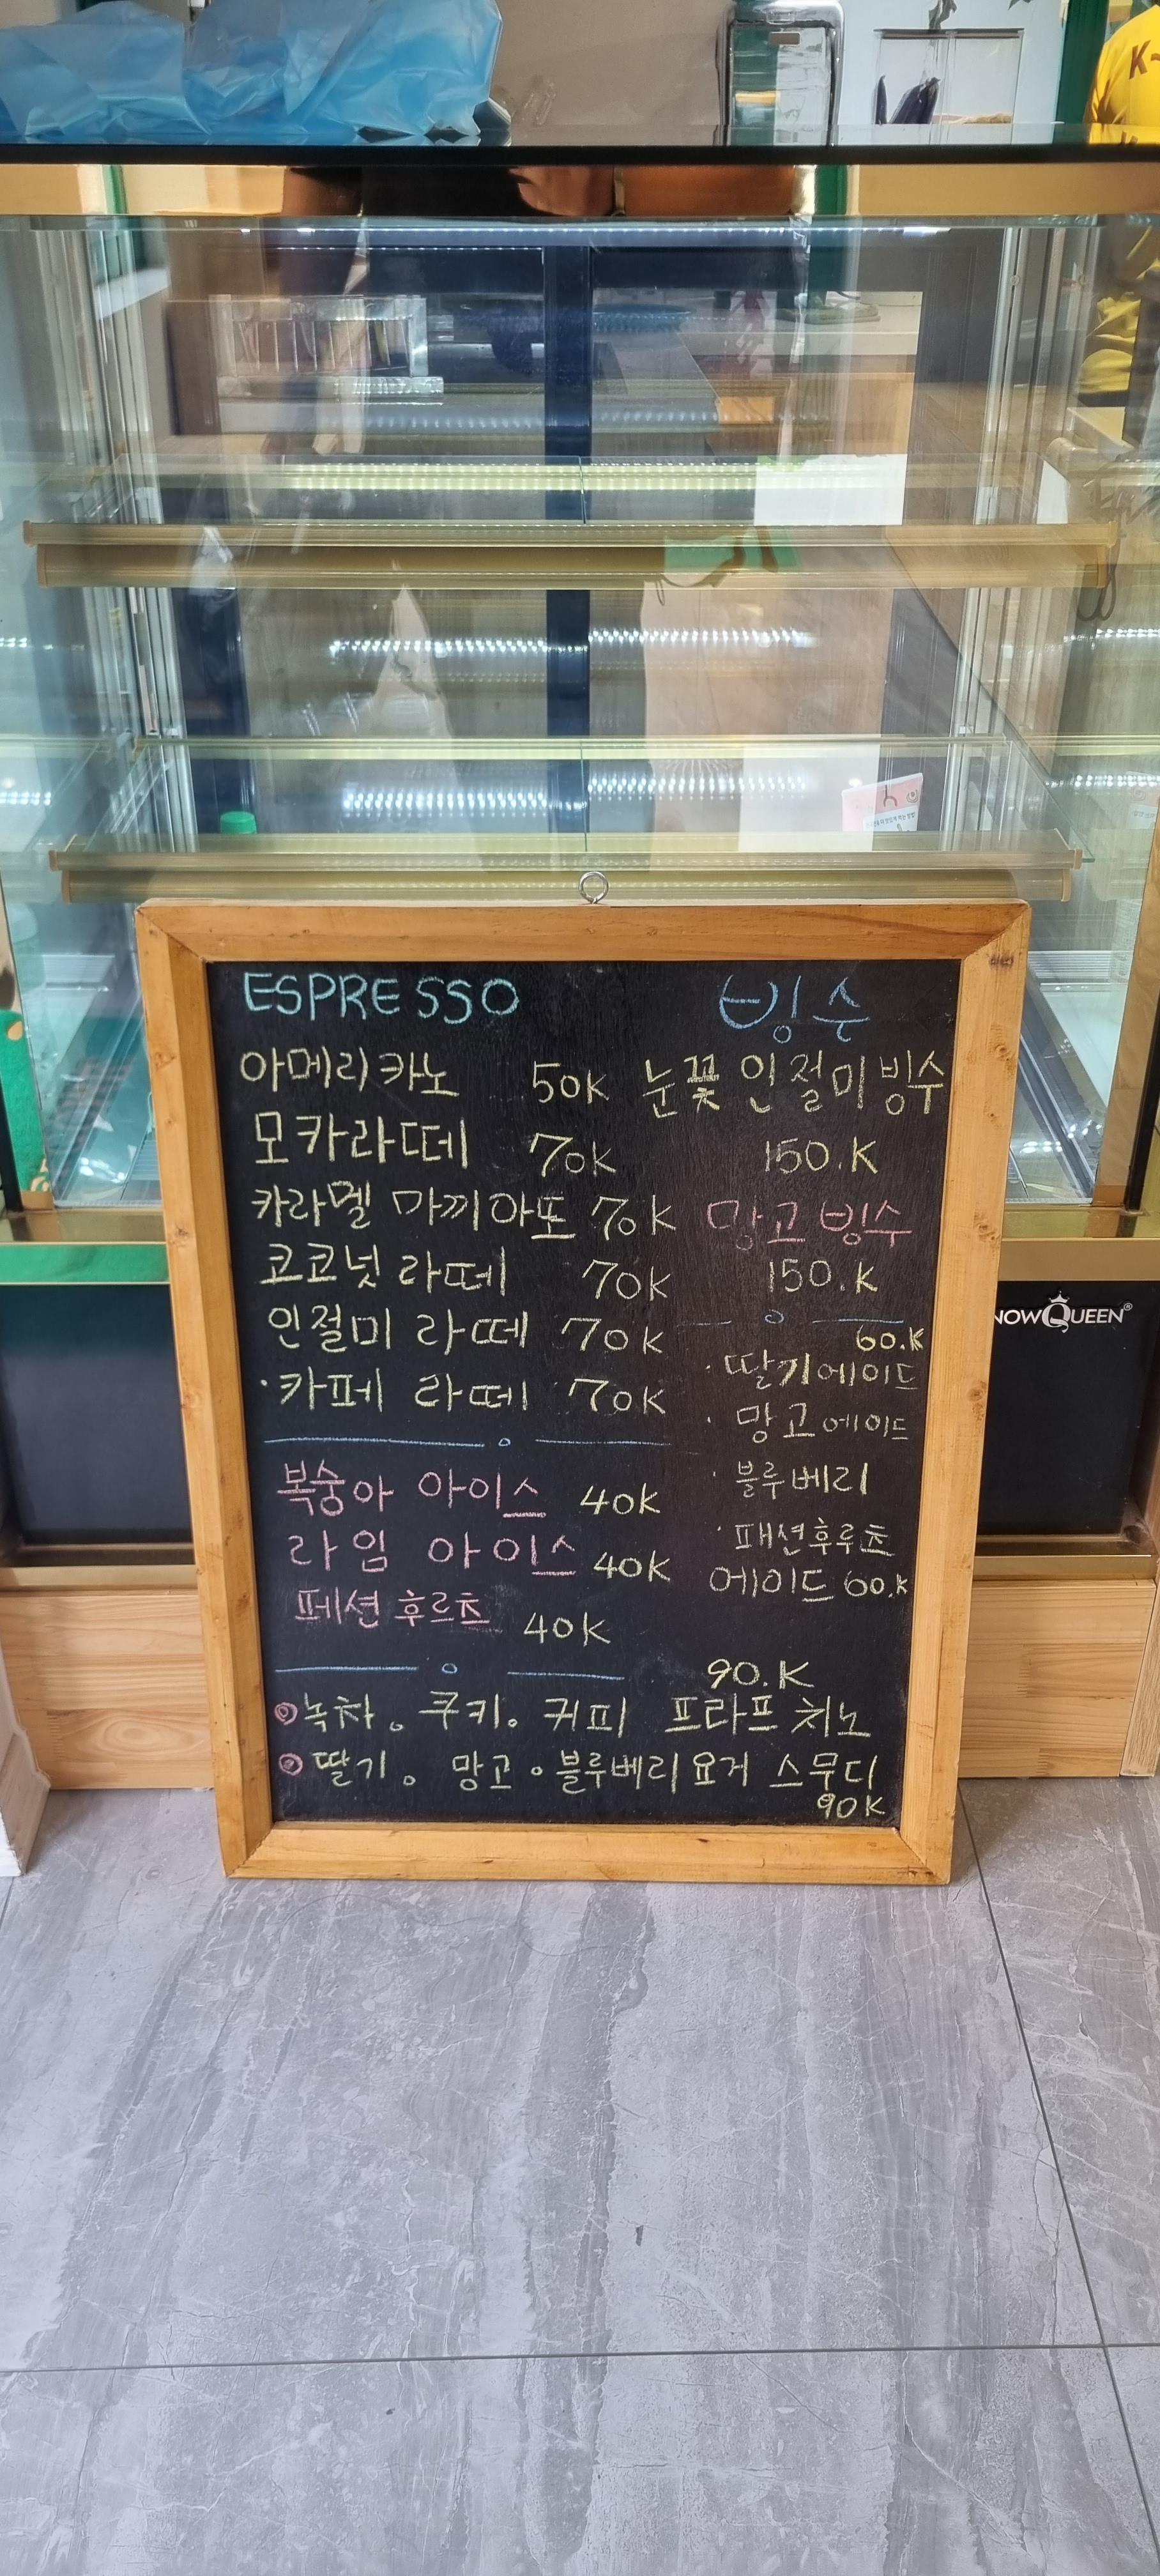 K-
ESPRESSO
아메리카노 50K
모카라떼 70K
카라멜 마끼아또 70K
코코넛 라떼 70K
인절미 라떼 70K
·카페 라떼 70K
복숭아 아이스 40K
라임 아이스 40K
페션후르츠 40K
빙수
눈꽃 인절미 빙수
150.K
망고 빙수
150.K
60.K
·딸기에이드
·망고에이드
·블루베리
·패션후루츠
에이드 60.K
90.K
녹차。쿠키。커피 프라프치노
딸기。망고。블루베리요거 스무디
90K
NOWQUEEN®